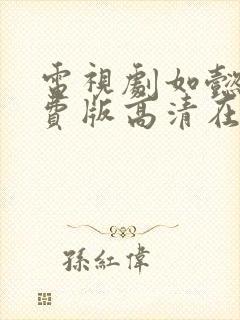 電視劇如懿
費版高清在
孫紅偉